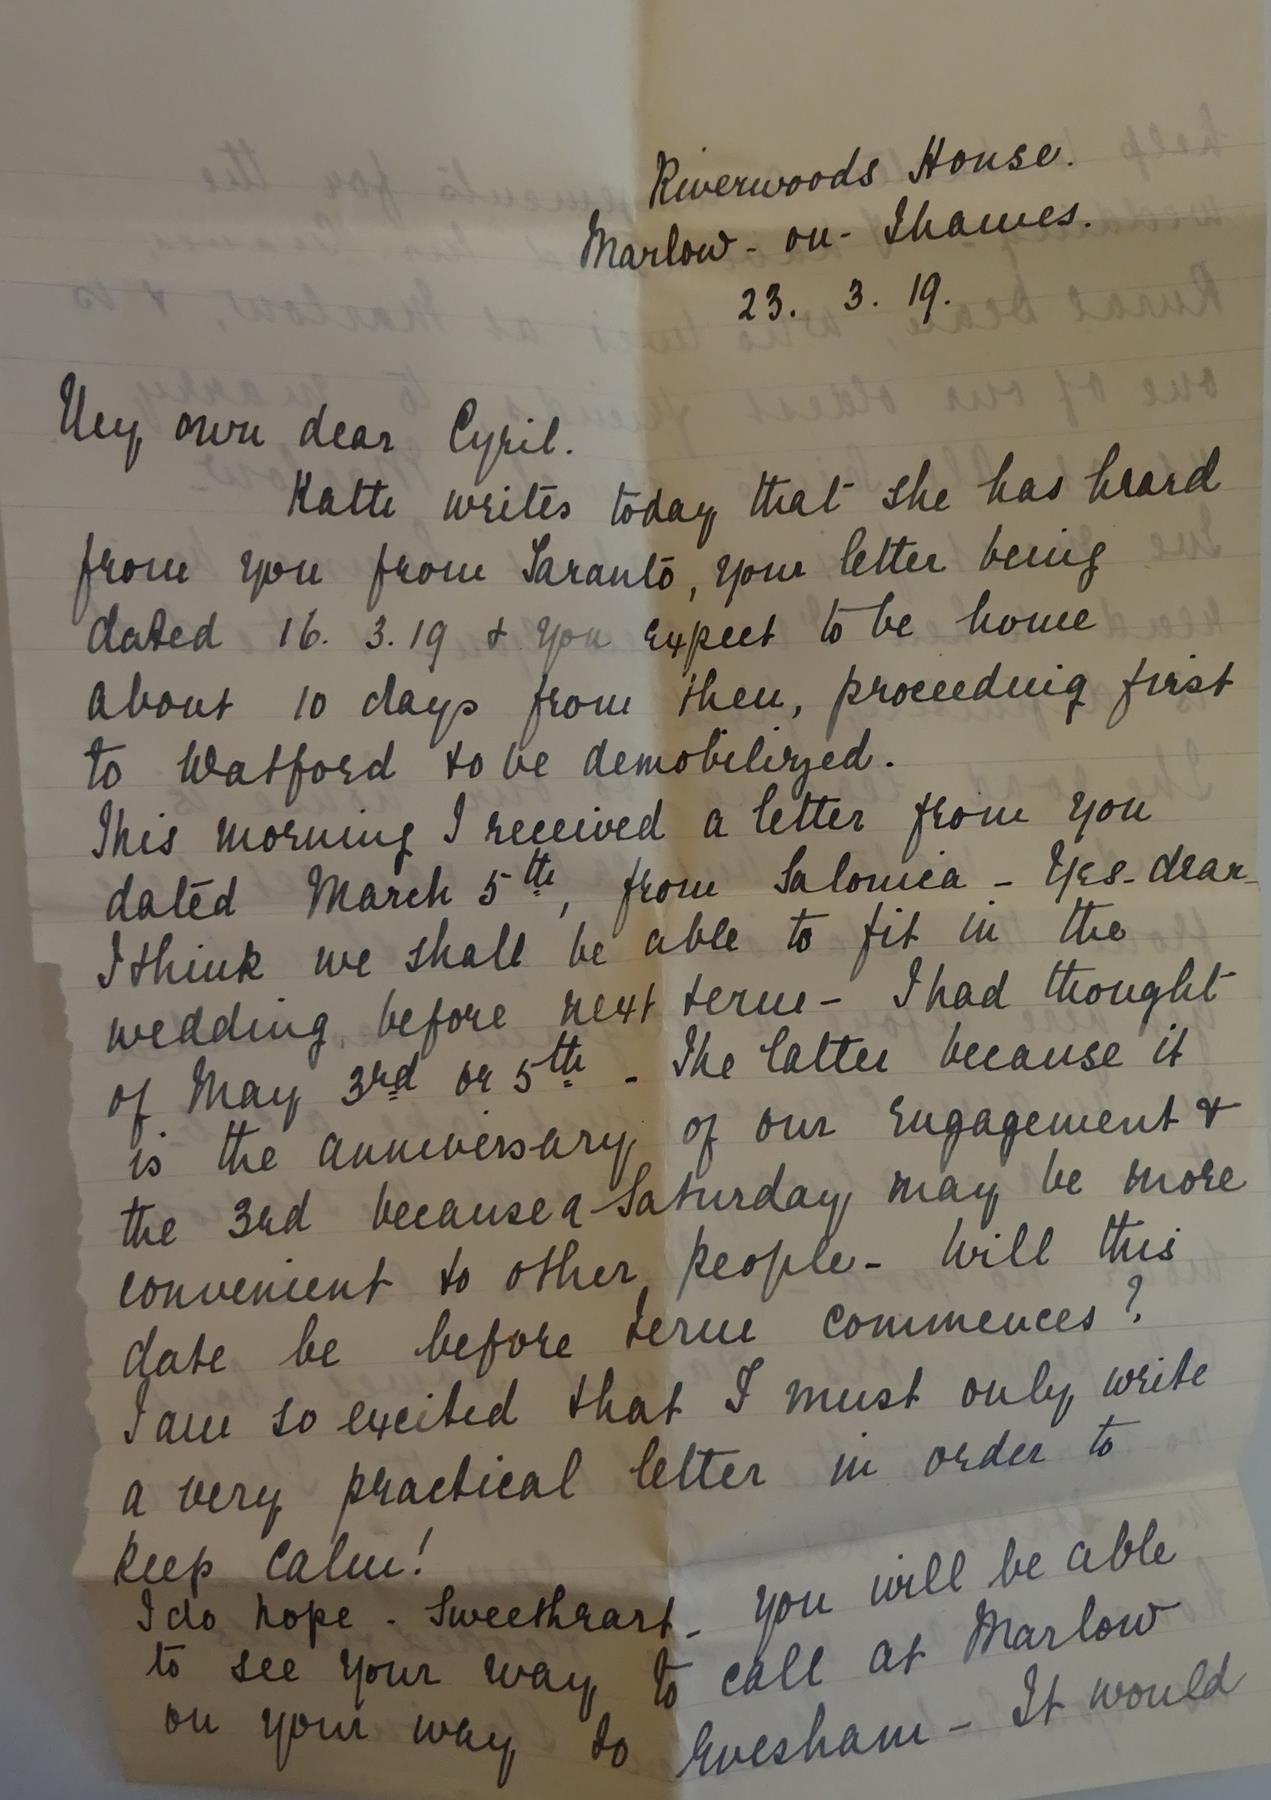 Riverwoods House.
Marlow - on - Thames.
23. 3. 19.
My own dear Cyril.
Katte writes today that she has heard
from you from Taranto, your letter being
dated 16. 3. 19 & you expect to be home
about 10 days from then, proceeding first
to Watford to be demobilized.
This morning I received a letter from you
dated March 5th, from Salonica - Yes - dear -
I think we shall be able to fit in the
wedding before next term - I had thought
of May 3rd or 5th - The latter because it
is the anniversary of our Engagement &
the 3rd because a Saturday may be more
convenient to other people - Will this
date be before term commences?
I am so excited that I must only write
a very practical letter in order to
keep calm!
I do hope - Sweetheart - you will be able
to see your way to call at Marlow
on your way to Evesham - It would